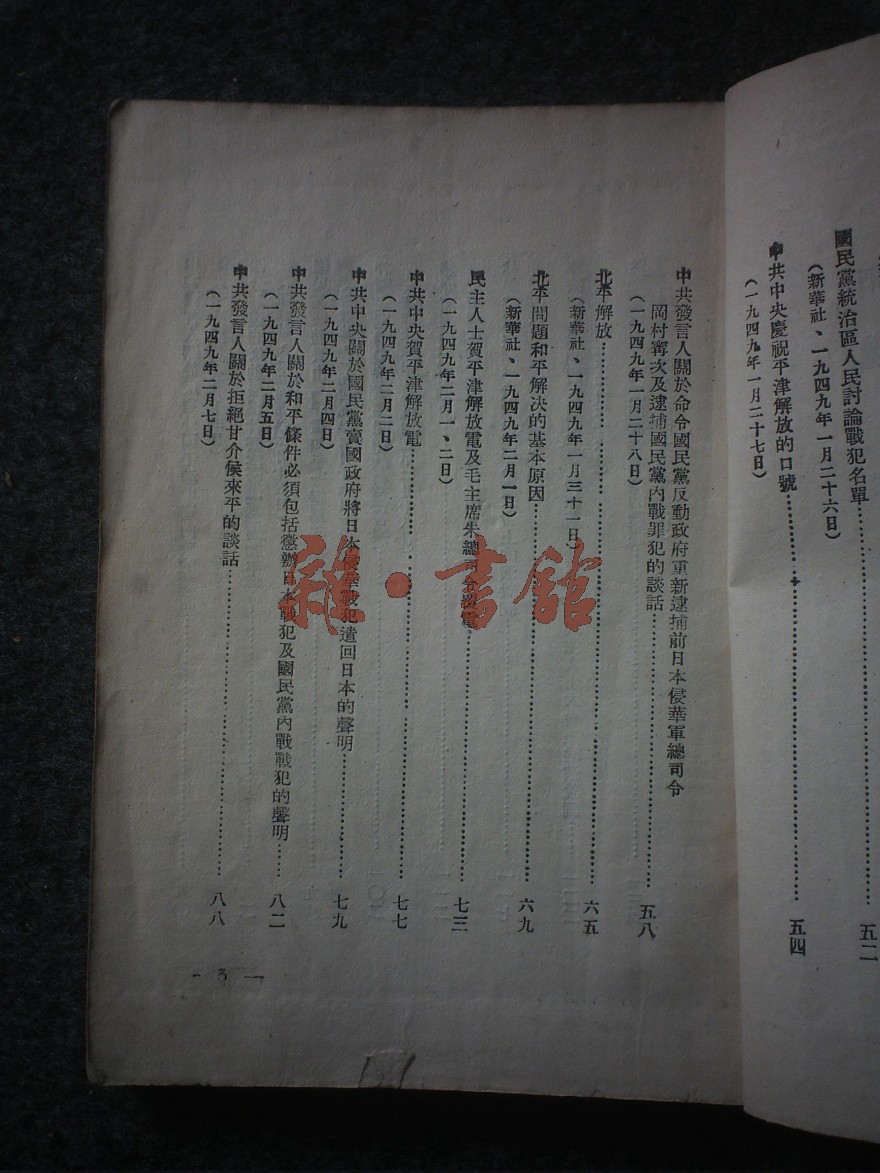 國民黨統治區人民討論戰犯名單……五二
(新華社、一九四九年一月二十六日)
中共中央慶祝平津解放的口號……五四
(一九四九年一月二十七日)
中共發言人關於命令國民黨反動政府重新逮捕前日本侵華軍總司令
岡村寗次及逮捕國民黨內戰罪犯的談話……五八
(一九四九年一月二十八日)
北平解放……六五
(新華社、一九四九年一月三十一日)
北平問題和平解決的基本原因……六九
(新華社、一九四九年二月一日)
民主人士賀平津解放電及毛主席朱總司令覆電……七三
(一九四九年二月一、二日)
中共中央賀平津解放電……七七
(一九四九年二月二日)
中共中央關於國民黨賣國政府將日本侵華戰犯遣回日本的聲明……七九
(一九四九年二月四日)
中共發言人關於和平條件必須包括懲辦日本戰犯及國民黨內戰戰犯的聲明……八二
(一九四九年二月五日)
中共發言人關於拒絕甘介侯來平的談話……八八
(一九四九年二月七日)
— 3 —
雜·書館